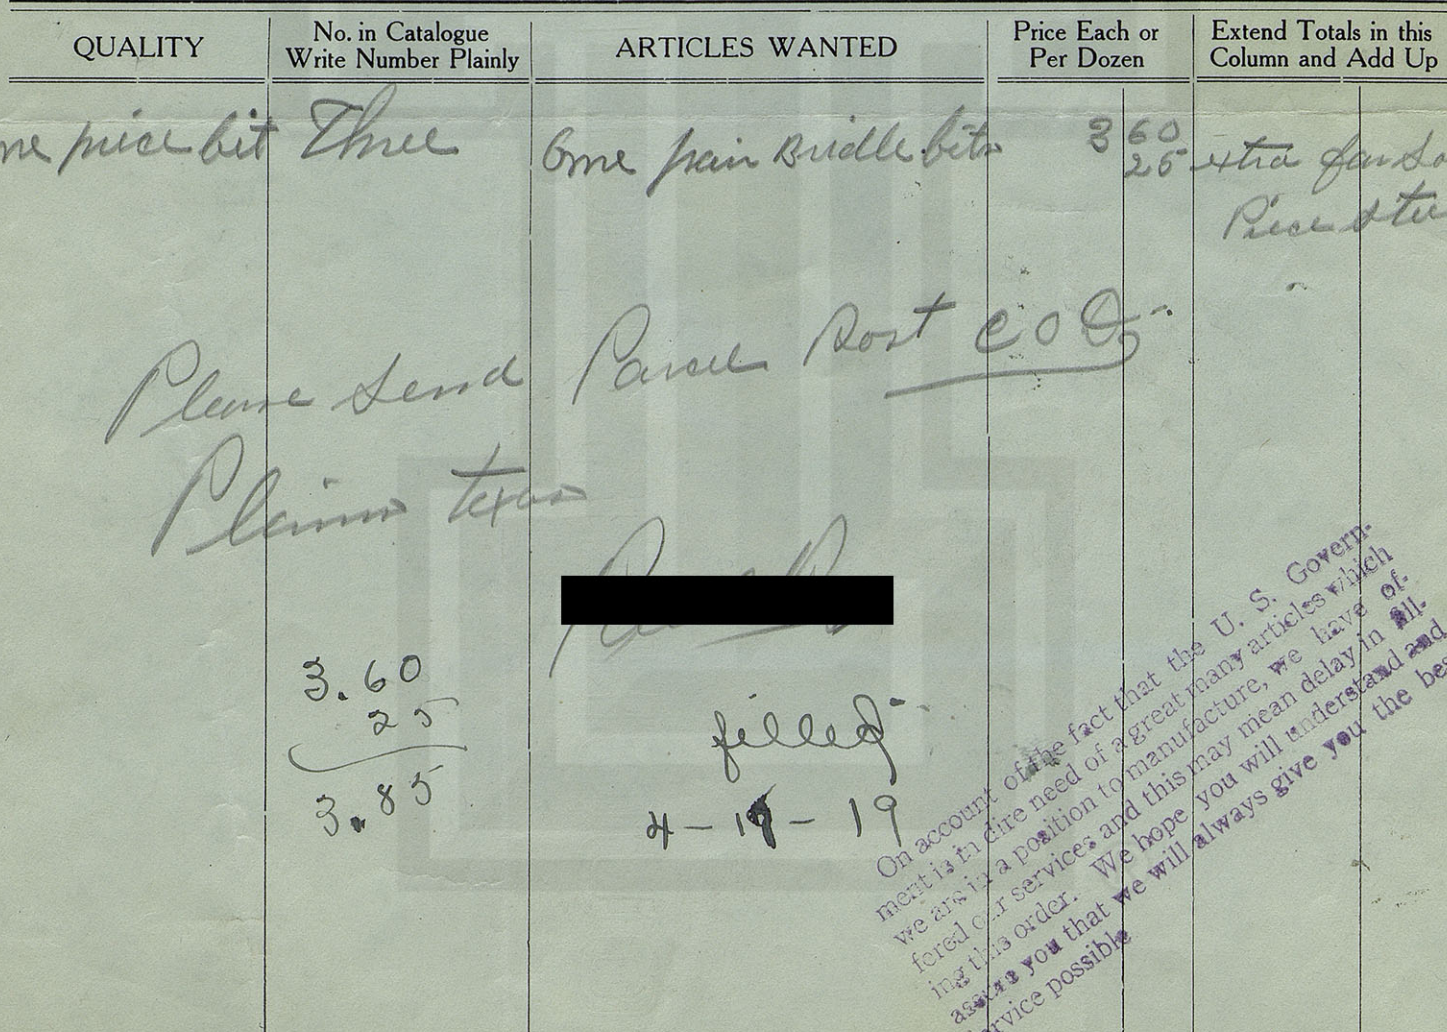 QUALITY
No. in Catalogue
Write Number Plainly
ARTICLES WANTED
Price Each or
Per Dozen
Extend Totals in this
Column and Add Up
ne piece bit Three One pair Bridle bits 3 60
25 extra for
Piece
Please Send Parcel Post C O D.
Plains Texas
3.60
25
3.85
filled
4-19-19
On account of the fact that the U. S. Govern-
ment is in dire need of a great many articles which
we are in a position to manufacture, we have of-
fered our services and this may mean delay in fill-
ing this order. We hope you will understand and
assure you that we will always give you the bes
ervice possible